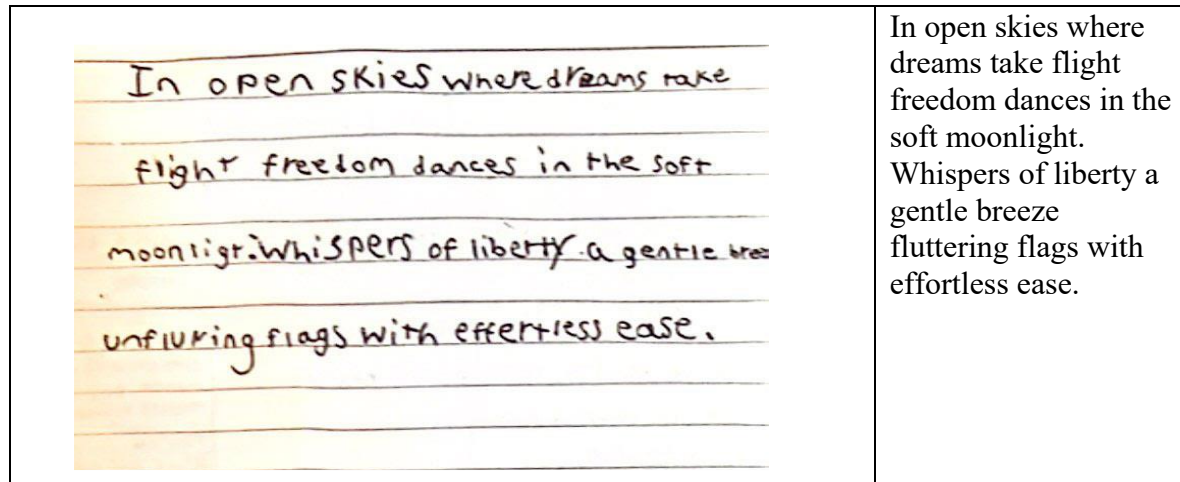 In open skies where dreams take
flight freedom dances in the soft
moonligt. Whispers of liberty a gentle bree
unfluring flags with effertless ease.
In open skies where
dreams take flight
freedom dances in the
soft moonlight.
Whispers of liberty a
gentle breeze
fluttering flags with
effortless ease.